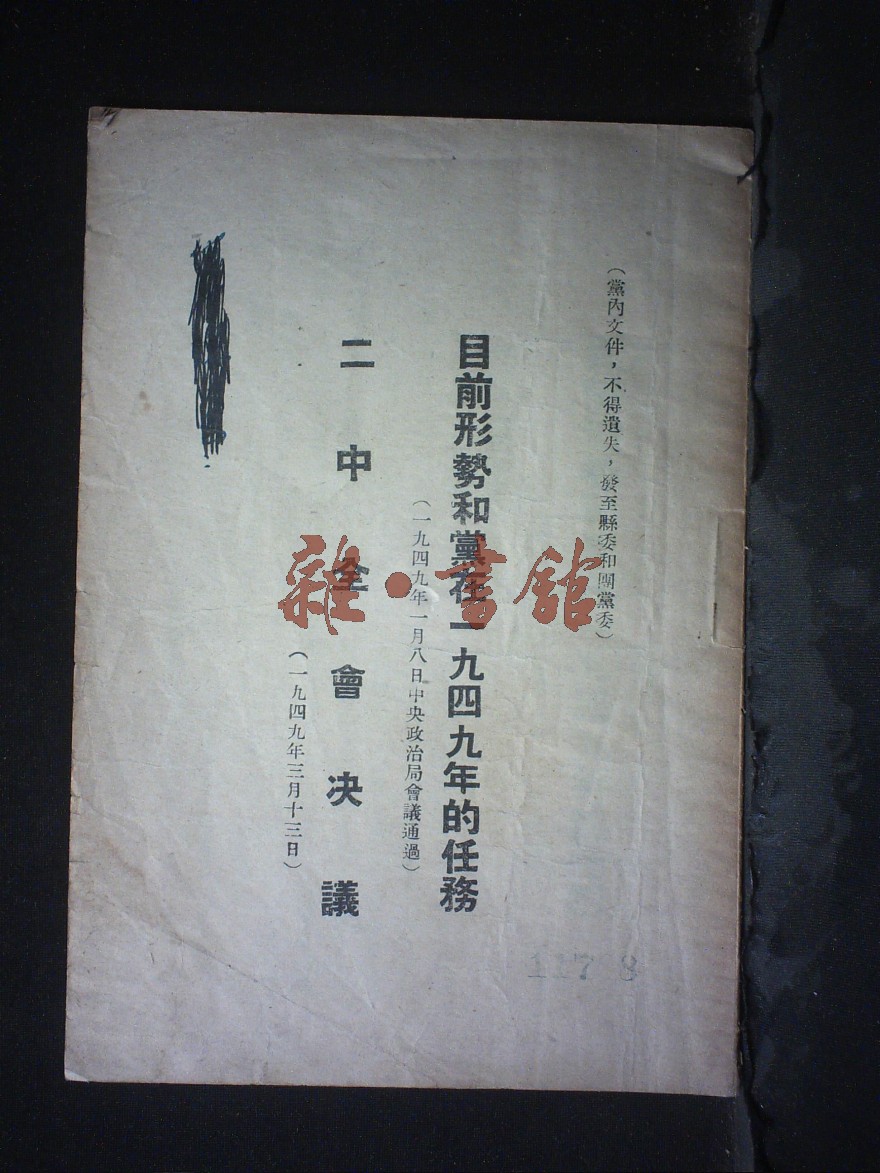 （黨內文件，不得遺失，發至縣委和團黨委）
目前形勢和黨在一九四九年的任務
（一九四九年一月八日中央政治局會議通過）
二中全會决議
（一九四九年三月十三日）
1178
雜·書館